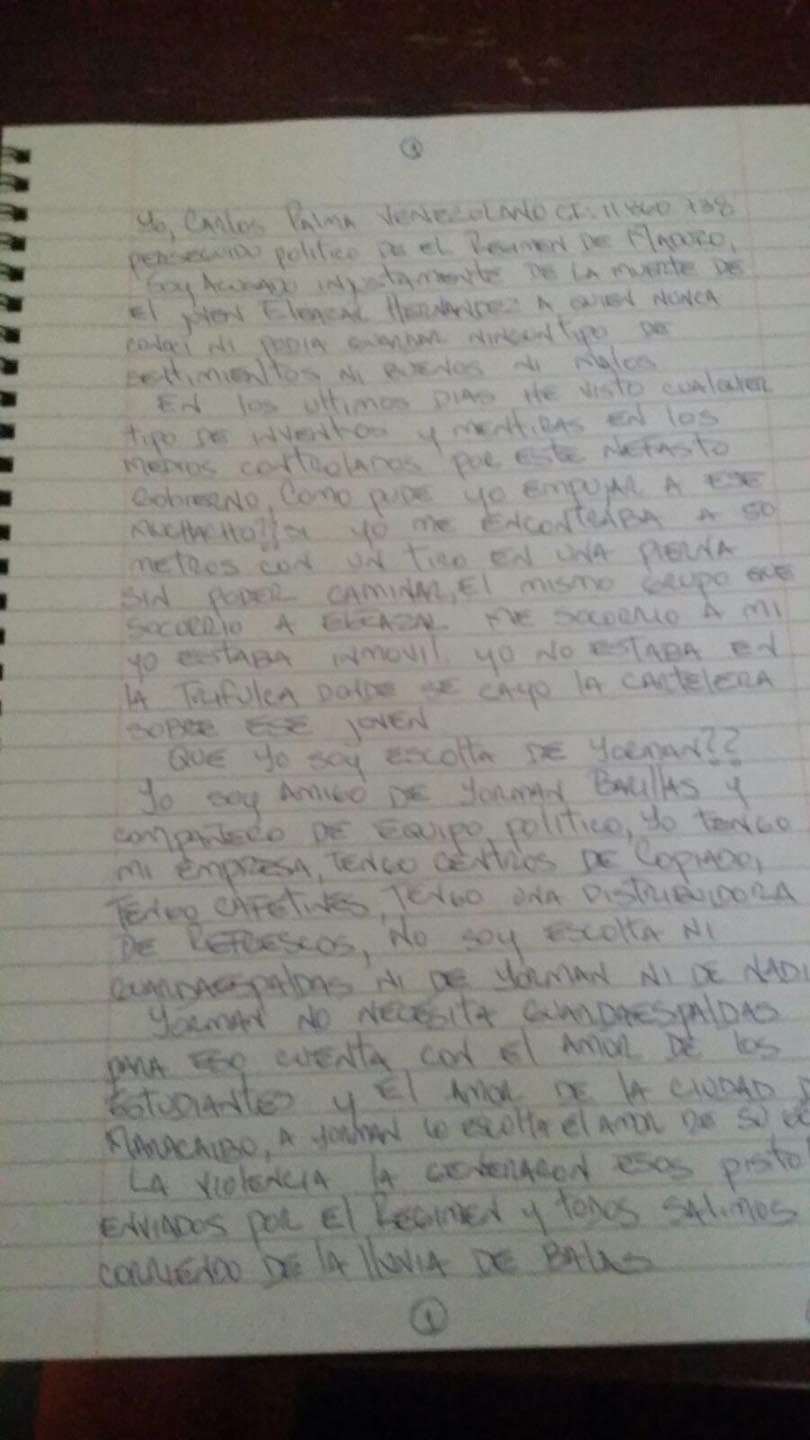 ①
Yo, Carlos Palma Venezolano CI: 11860738
perseguido político de el Regimen de Maduro,
Soy Acusado injustamente de la muerte de
el joven Eleazar Hernandez a quien nunca
conocí ni podia guardar ningun tipo de
sentimientos ni buenos ni malos
En los ultimos dias he visto cualquier
tipo de inventos y mentiras en los
medios controlados por este nefasto
Gobierno, Como pude yo empujar a ese
muchacho?? si yo me encontraba a 50
metros con un tiro en una pierna
sin poder caminar, el mismo grupo que
socorrio a Eleazar me socorrio a mi
yo estaba inmovil, yo no estaba en
la trifulca donde se cayo la cartelera
sobre ese joven
Que yo soy escolta de Yorman??
Yo soy amigo de Yorman Barillas y
compañero de equipo político, yo tengo
mi empresa, tengo centros de copiado,
tengo cafetines, tengo una distribuidora
de refrescos, no soy escolta ni
guardaespaldas ni de Yorman ni de nadi
Yorman no necesita guardaespaldas
para eso cuenta con el amor de los
estudiantes y el amor de la ciudad d
Maracaibo, a Yorman lo escolta el amor de su
La violencia la generaron esos pistol
enviados por el Regimen y todos salimos
corriendo de la lluvia de balas
①